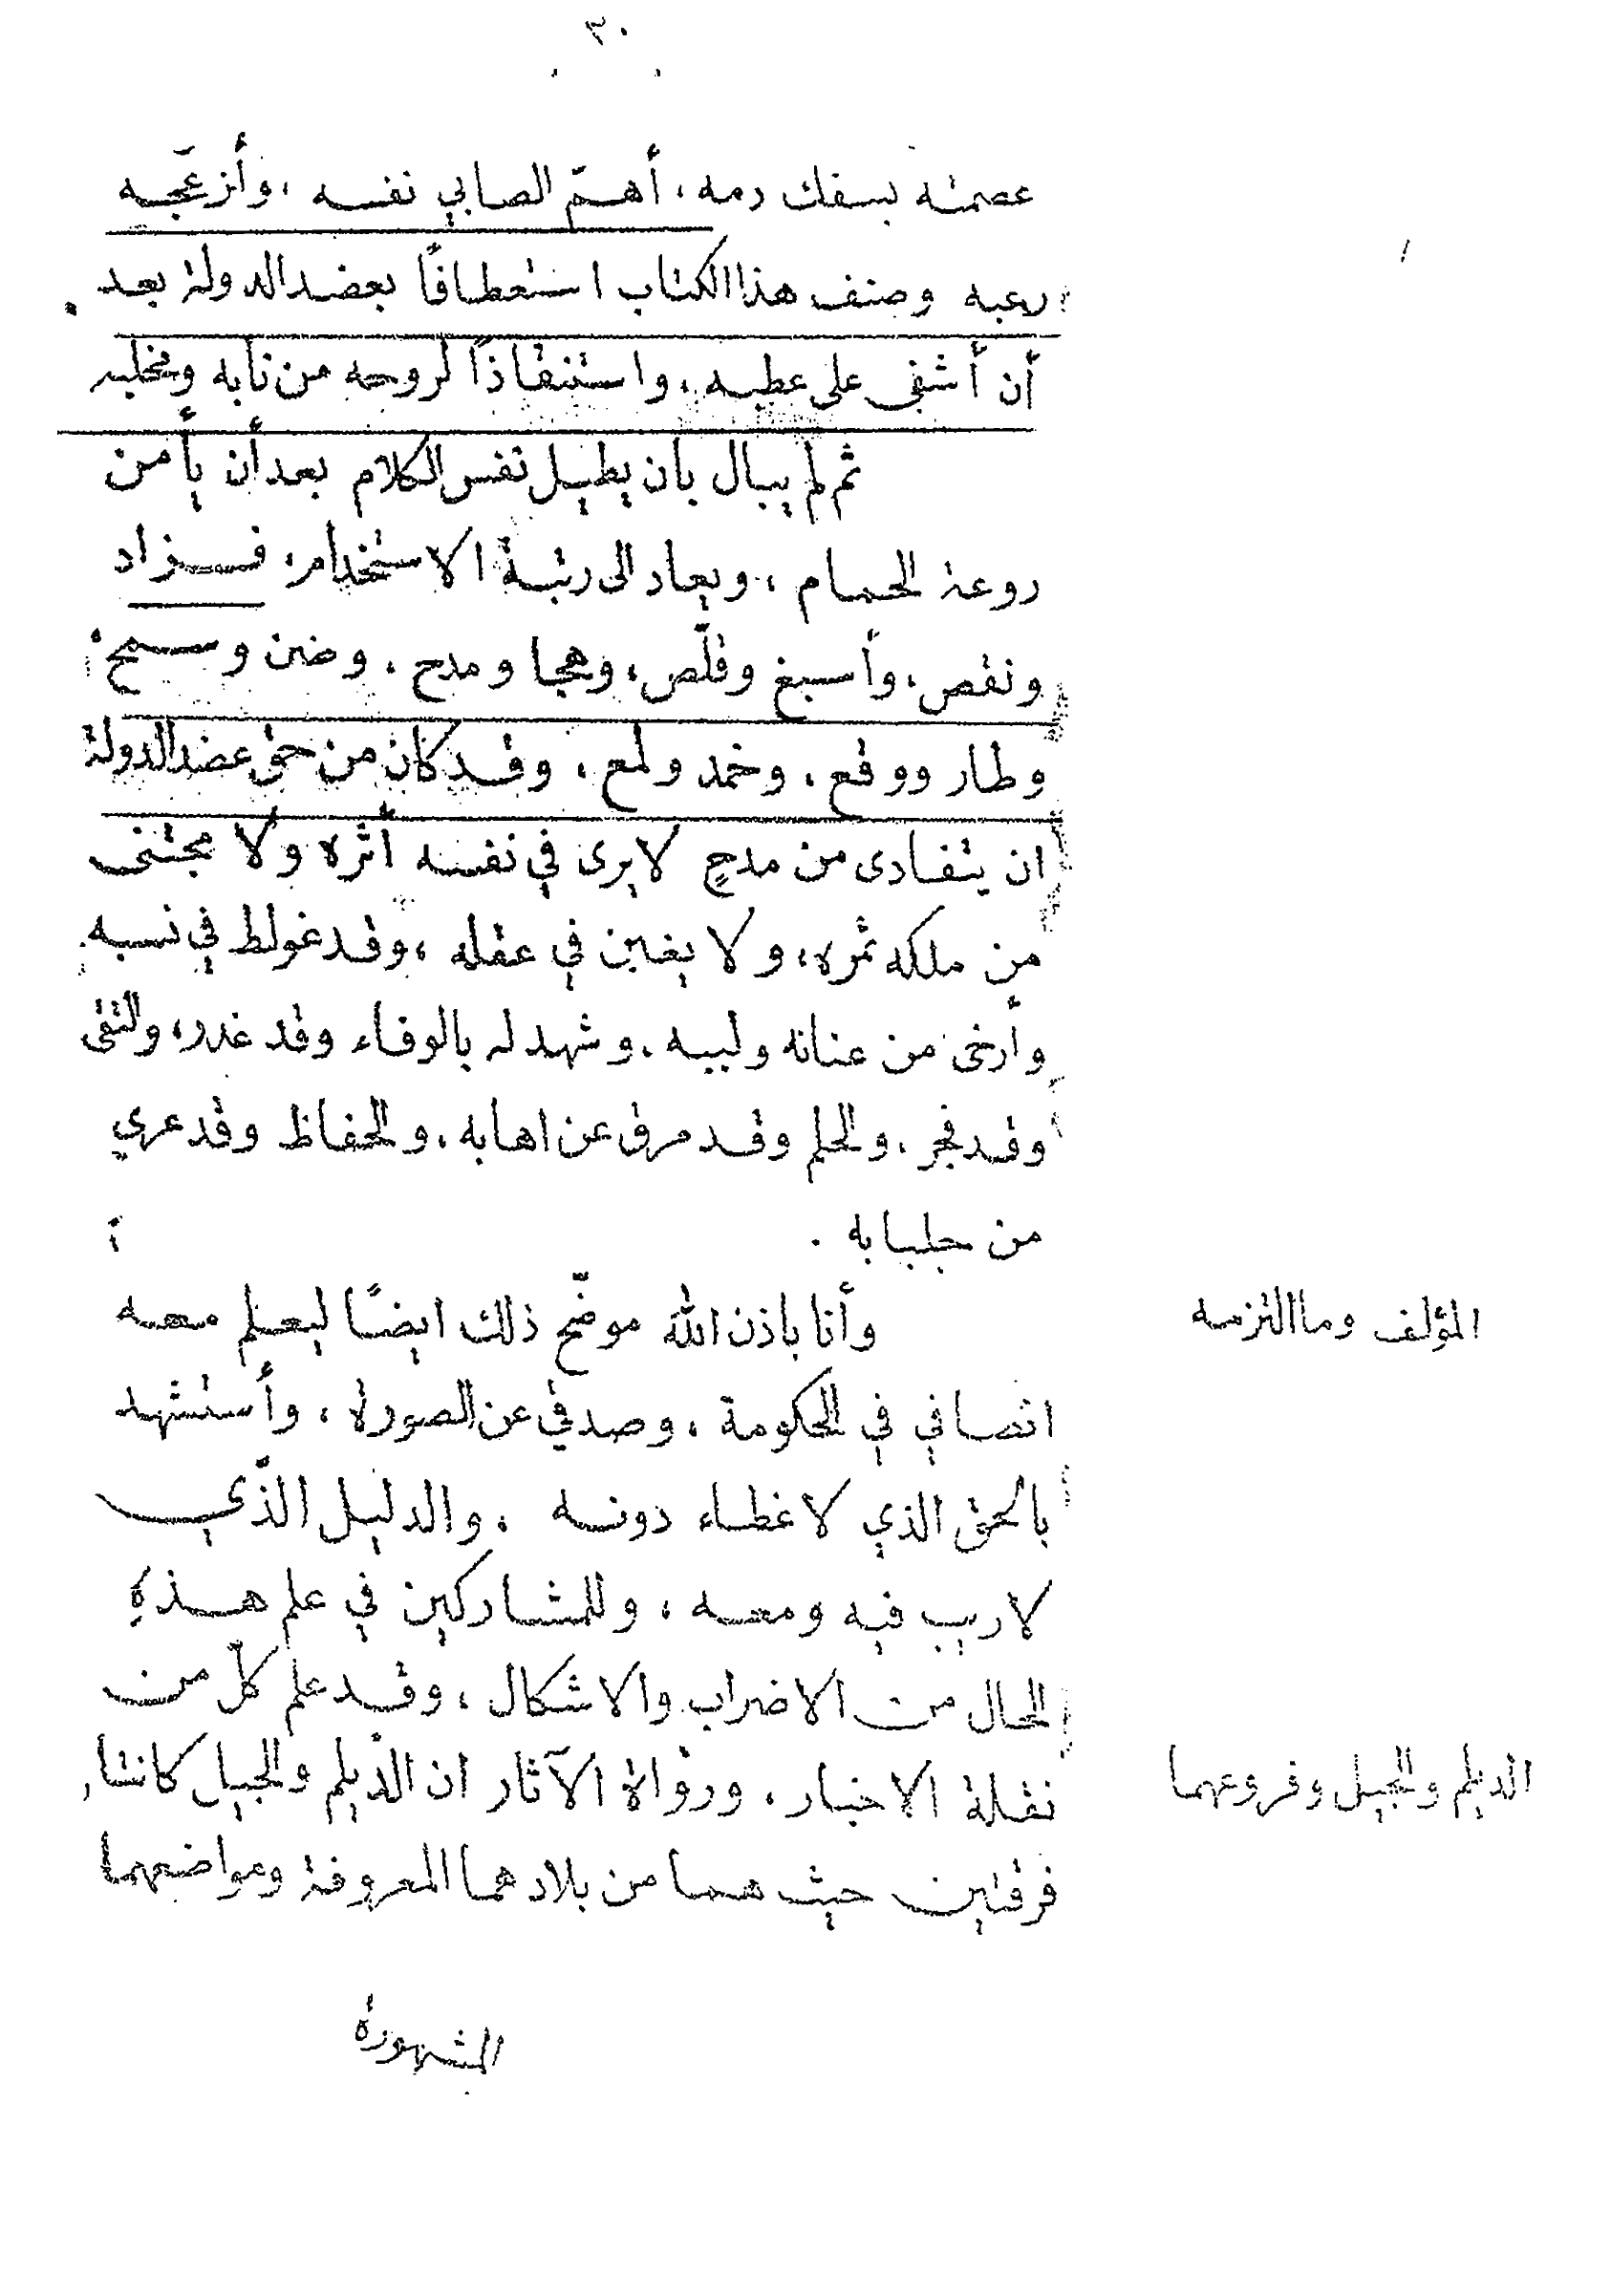 ٣٠
عصمته بسفك دمه، أهمّ الصابي نفسه، وأزعجه
رعبه وصنف هذا الكتاب استعطافًا بعضد الدولة بعد
أن أشفى على عطبه، واستنقاذًا لروحه من نابه ومخلبه
ثم لم يبال بان يطيل نفس الكلام بعد أن يأمن
روعة الحمام، ويعاد الى رتبة الاستخدام، فزاد
ونقص، وأسبغ وقلّص، وهجا ومدح، وضن وسمح
وطار ووقع، وخمد ولمع، وقد كان من حق عضد الدولة
ان يتفادى من مدحٍ لا يرى في نفسه أثره ولا مجتنى
من ملكه ثمره، ولا يغبن في عقله، وقد غولط في نسبه
وأرخى من عنانه ولببه، وشهد له بالوفاء وقد غدر، والتقى
وقد فجر، والحلم وقد مرق عن اهابه، والحفاظ وقد عري
من جلبابه .
المؤلف وما التزمه
وأنا باذن الله موضّح ذلك ايضًا ليعلم معه
انصافي في الحكومة، وصدقي عن الصورة، وأستشهد
بالحق الذي لا غطاء دونه، والدليل الذّي
لا ريب فيه ومعه، وللمشاركين في علم هذهِ
الحال من الاضراب والاشكال، وقد علم كلّ من
الديلم والجيل وفروعهما
نقلة الاخبار، ورواة الآثار ان الديلم والجيل كانتا
فرقتين حيث هما من بلادهما المعروفة ومواضعهما
المشهورة